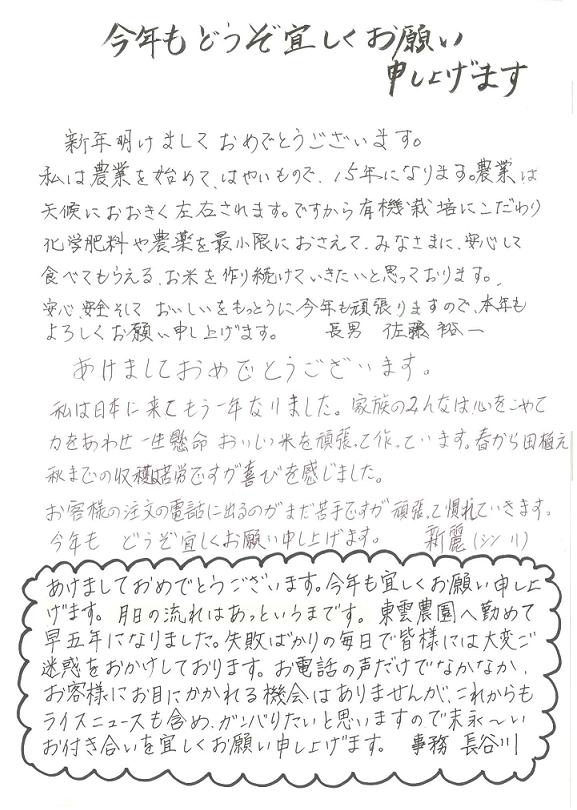 今年もどうぞ宜しくお願い
申し上げます
新年明けましておめでとうございます。
私は農業を始めて、はやいもので、15年になります。農業は
天候におおきく左右されます。ですから有機栽培にこだわり
化学肥料や農薬を最小限におさえて、みなさまに、安心して
食べてもらえる、お米を作り続けていきたいと思っております。
安心、安全そして おいしいをもっとうに今年も頑張りますので、本年も
よろしくお願い申し上げます。 長男 佐藤 裕一
あけましておめでとうございます。
私は日本に来てもう一年なりました。家族のみんなは心をこめて
力をあわせ一生懸命 おいしい米を頑張って作っています。春から田植え
秋までの収穫は苦労ですが喜びを感じました。
お客様の注文の電話に出るのがまだ苦手ですが 頑張って慣れていきます。
今年も どうぞ宜しくお願い申し上げます。 新麗(シンリ)
あけましておめでとうございます。今年も宜しくお願い申し上
げます。月日の流れはあっというまです。東雲農園へ勤めて
早五年になりました。失敗ばかりの毎日で皆様には大変ご
迷惑をおかけしております。お電話の声だけでなかなか、
お客様にお目にかかれる機会はありませんが、これからも
ライスニュースも含め、ガンバりたいと思いますので末永〜い
お付き合いを宜しくお願い申し上げます。 事務 長谷川